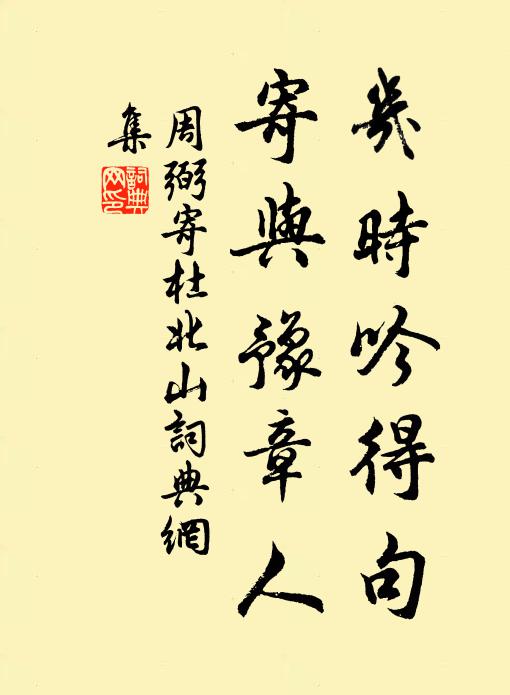 幾時吟得句
寄與豫章人
周弼寄杜北山詞典網
集
詞典網印